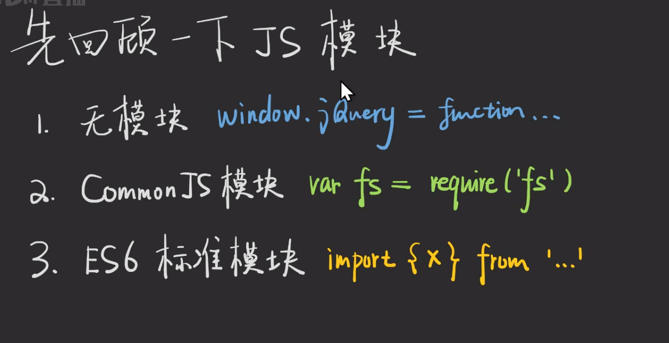 先回顾一下JS模块
1. 无模块 window.jQuery = function...
2. CommonJS模块 var fs = require('fs')
3. ES6 标准模块 import {x} from '...'